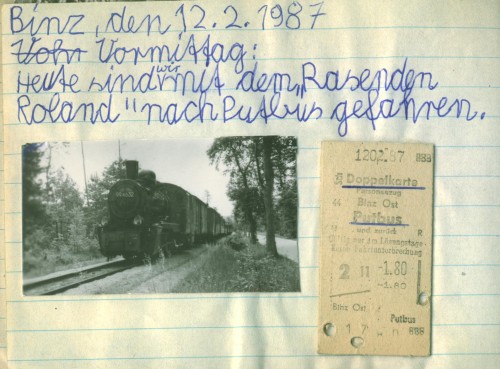 Binz, den 12.2.1987
Vohr Vormittag:
Heute sind wir mit dem „Rasenden
Roland" nach Putbus gefahren.
1202.87 888
Doppelkarte
Personenzug
44 Binz Ost
Putbus
und zurück
2 11 -1.80
-1.80
Binz Ost
Putbus
888